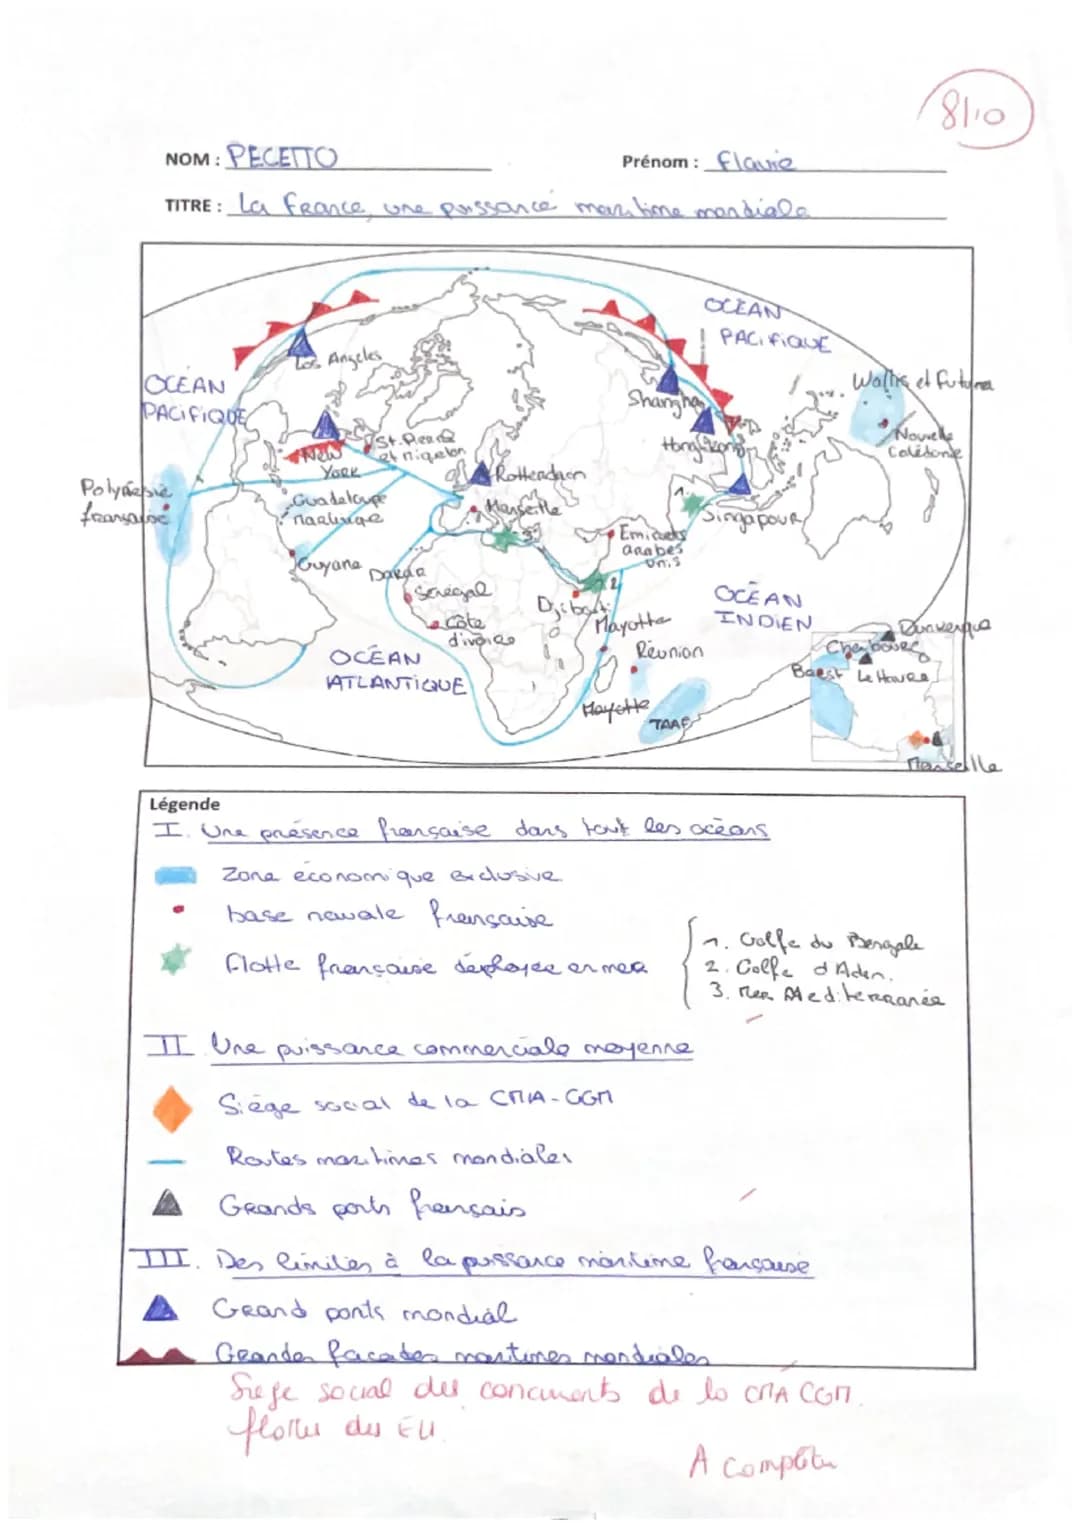 8/10
NOM : PECETTO
Prénom : Flavie
TITRE : La France, une puissance maritime mondiale
OCÉAN
PACIFIQUE
Los Angeles
OCÉAN
PACIFIQUE
Wallis et Futuna
Shanghai
Nouvelle
Calédonie
Hong Kong
St. Pierre
et Miquelon
New
York
Rotterdam
Polynésie
française
Guadeloupe
Martinique
Marseille
1.
Singapour
3
Emirats
arabes
unis
Guyane
Dakar
Sénégal
2
Djibouti
OCÉAN
INDIEN
Côte
d'ivoire
Mayotte
Réunion
Dunkerque
Cherbourg
Brest
Le Havre
OCÉAN
ATLANTIQUE
Mayotte
TAAF
Marseille
Légende
I. Une présence française dans tout les océans
Zone économique exclusive
base navale française
Flotte française déployée en mer
1. Golfe du Bengale
2. Golfe d'Aden.
3. Mer Mediterranée
II Une puissance commerciale moyenne
Siège social de la CMA-CGM
Routes maritimes mondiales
Grands ports français
III. Des limites à la puissance maritime française
Grand ports mondial
Grandes facades maritimes mondiales
Siege social des concurrents de la CMA CGM.
flottes des EU.
A compléter